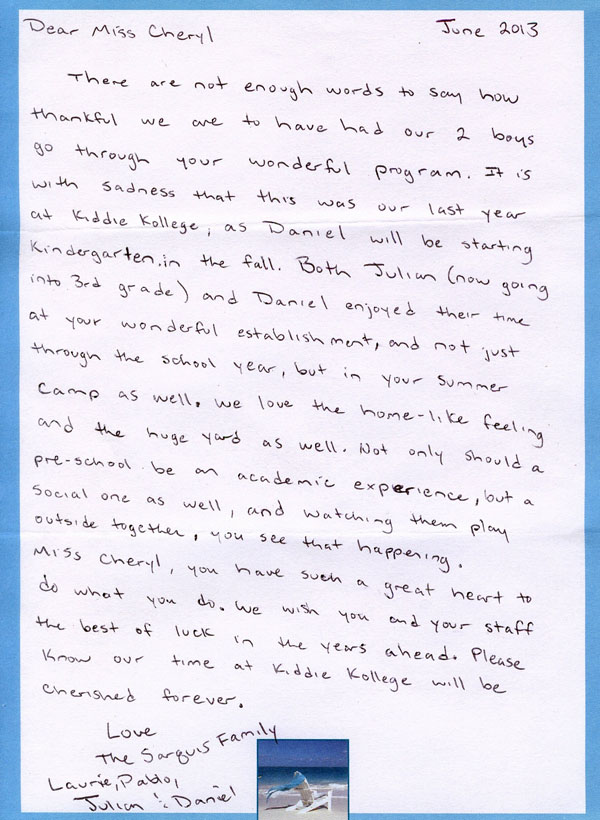 Dear Miss Cheryl June 2013
There are not enough words to say how
thankful we are to have had our 2 boys
go through your wonderful program. It is
with sadness that this was our last year
at Kiddie Kollege, as Daniel will be starting
Kindergarten in the fall. Both Julian (now going
into 3rd grade) and Daniel enjoyed their time
at your wonderful establishment, and not just
through the school year, but in your summer
camp as well. We love the home-like feeling
and the huge yard as well. Not only should a
pre-school be an academic experience, but a
social one as well, and watching them play
outside together, you see that happening.
Miss Cheryl, you have such a great heart to
do what you do. We wish you and your staff
the best of luck in the years ahead. Please
know our time at Kiddie Kollege will be
cherished forever.
Love
The Sarquis Family
Laurie, Pablo,
Julian & Daniel